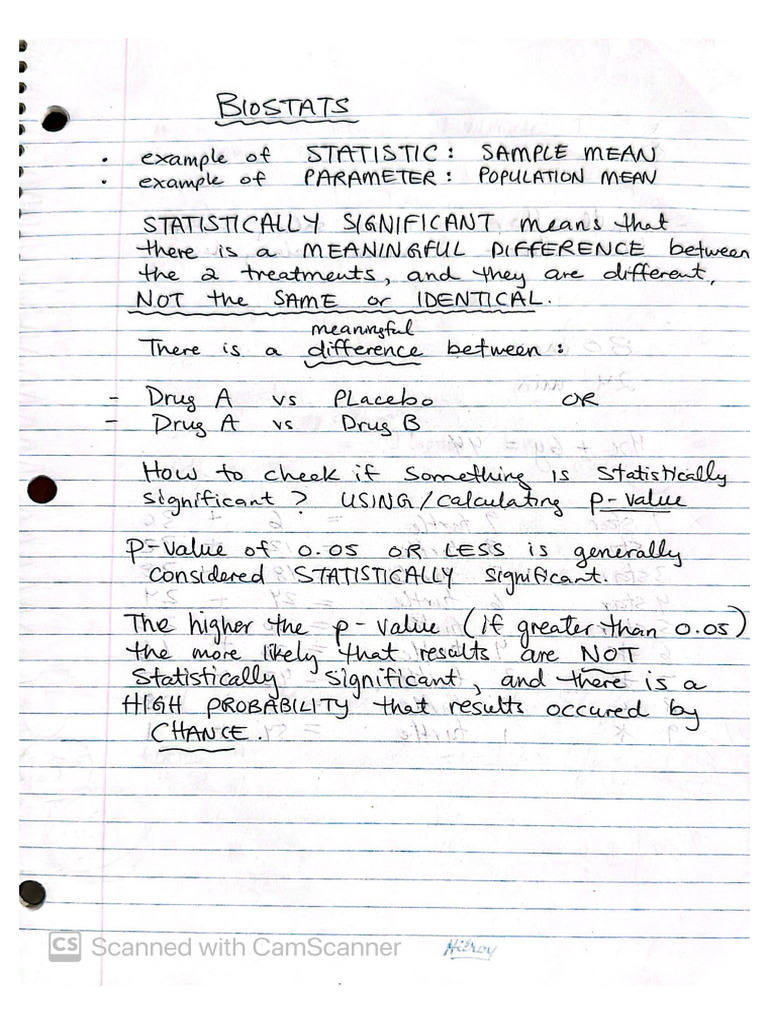 BIOSTATS
· example of STATISTIC: SAMPLE MEAN
· example of PARAMETER: POPULATION MEAN
STATISTICALLY SIGNIFICANT means that
there is a MEANINGFUL DIFFERENCE between
the 2 treatments, and they are different,
NOT the SAME or IDENTICAL.
meaningful
There is a difference between:
- Drug A vs PLacebo OR
- Drug A vs Drug B
How to check if something is statistically
significant? USING/calculating p-value
p-value of 0.05 OR LESS is generally
considered STATISTICALLY significant.
The higher the p-value (if greater than 0.05)
the more likely that results are NOT
statistically significant, and there is a
HIGH PROBABILITY that results occured by
CHANCE.
CS Scanned with CamScanner
Hilroy